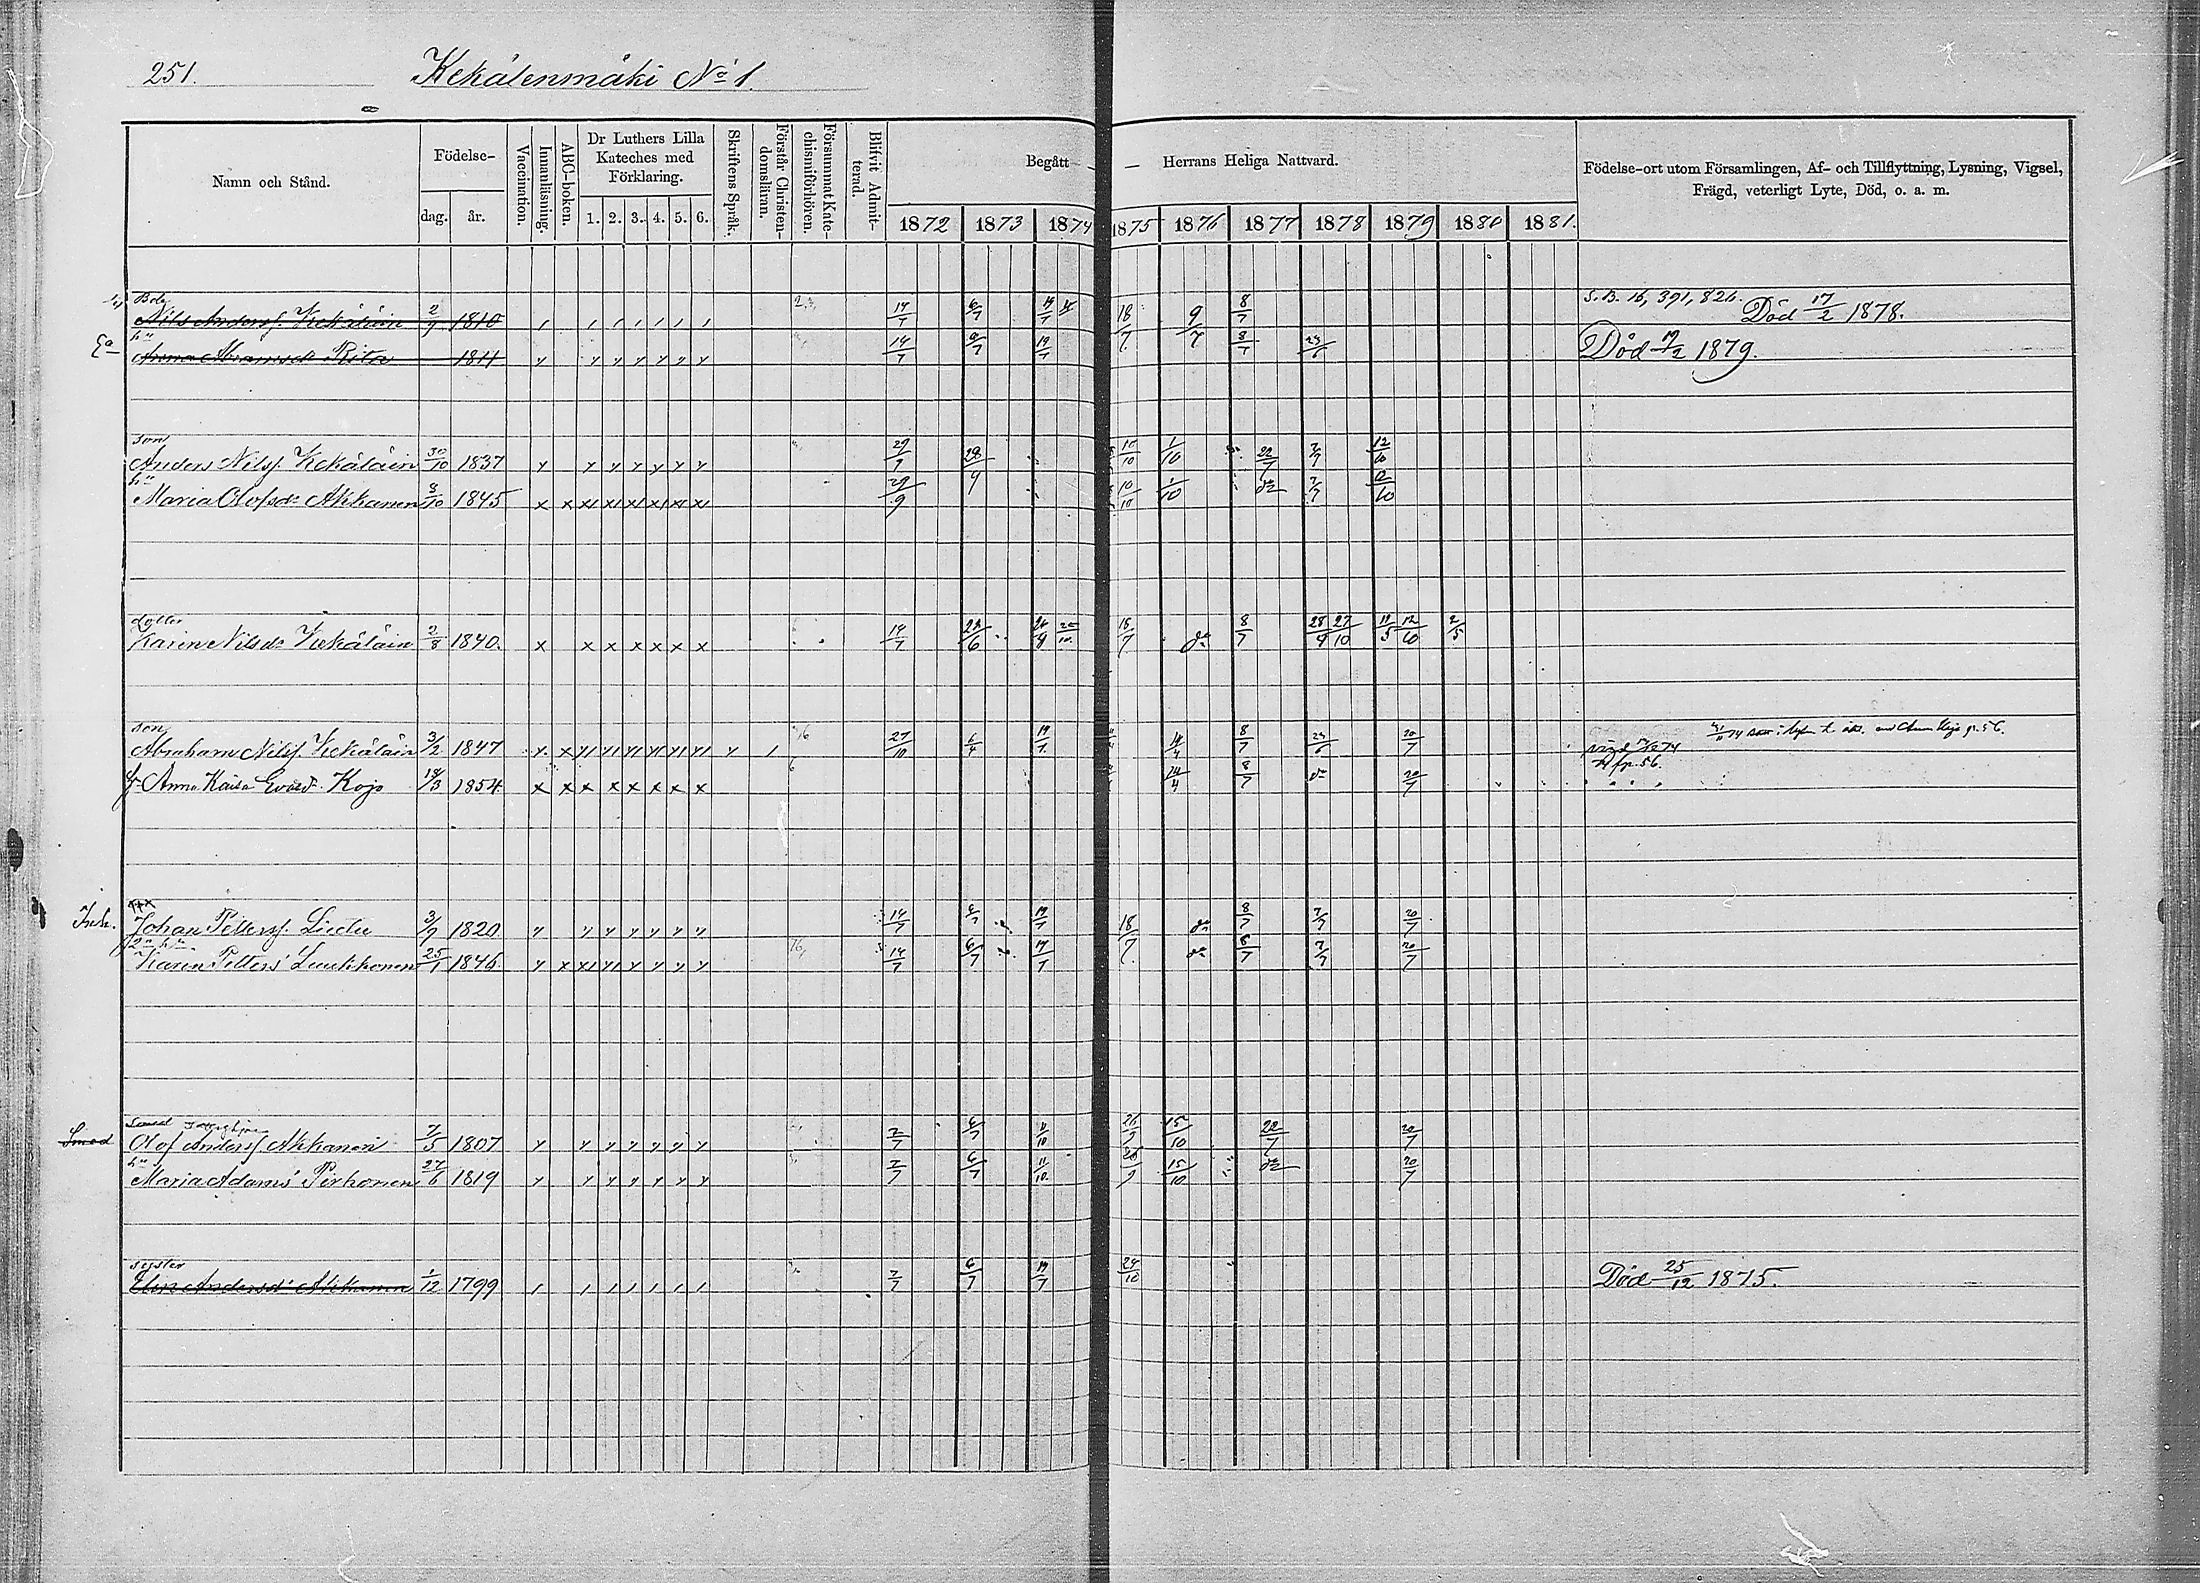 251. Kekälenmäki No 1.
Namn och Stånd.
Födelse-
dag. år.
Vaccination.
Innanläsning.
ABC-boken.
Dr Luthers Lilla
Kateches med
Förklaring.
1. 2. 3. 4. 5. 6.
Skriftens Språk.
Förstår Christen-
domsläran.
Försummat Kate-
chismiförhören.
Blifvit Admit-
terad.
Begått — — Herrans Heliga Nattvard.
1872 1873 1874 1875 1876 1877 1878 1879 1880 1881.
Födelse-ort utom Församlingen, Af- och Tillflyttning, Lysning, Vigsel,
Frägd, veterligt Lyte, Död, o. a. m.
Nils Anderss. Kekäläin 2/9 1810 14/7 6/7 19/7 18/7 9/7 8/7 S.B. 16, 391, 826. Död 17/2 1878.
hu
Anna Abramsdr 1811 y y y y y y y 14/7 6/7 19/7 8/7 23/6 Död 9/2 1879.
Son
Anders Nilss. Kekäläin 30/10 1837 y y y y y y y 29/9 28/9 10/10 1/10 22/7 7/7 12/10
hu
Maria Olofsdr Akkanen 8/10 1845 x x x x x x x x 29/9 10/10 1/10 do 7/7 12/10
dotter
Karin Nilsdr Kekäläin 2/8 1840. x x x x x x x 14/7 23/6 18/7 do 8/7 28/9 27/10 12/10 2/5
son
Abraham Nilss. Kekäläin 3/2 1847 27/10 19/7 8/7 23/6 20/7
Anna Kaisa Kojo 18/3 1854 x x x x x x x x 24/4 8/7 do 20/7
Inh. Johan Petterss. Liedu 3/9 1820 y y y y y y y 14/7 6/7 19/7 18/7 do 8/7 7/7 20/7
2a hu
Karin Petters' Luukkonen 25/1 1846. 14/7 6/7 19/7 7 do 8/7 7/7 20/7
Olof Anderss. Akkanen 7/5 1807 y y y y y y y 7/7 6/7 11/10 26/9 15/10 22/7 20/7
hu
Maria Adams' Pirhonen 27/6 1819 y y y y y y y 7/7 6/7 11/10 26/9 15/10 do 20/7
syster
Elin Andersd' Akkanen 1/12 1799 7/7 6/7 19/7 24/10 Död 25/12 1875.